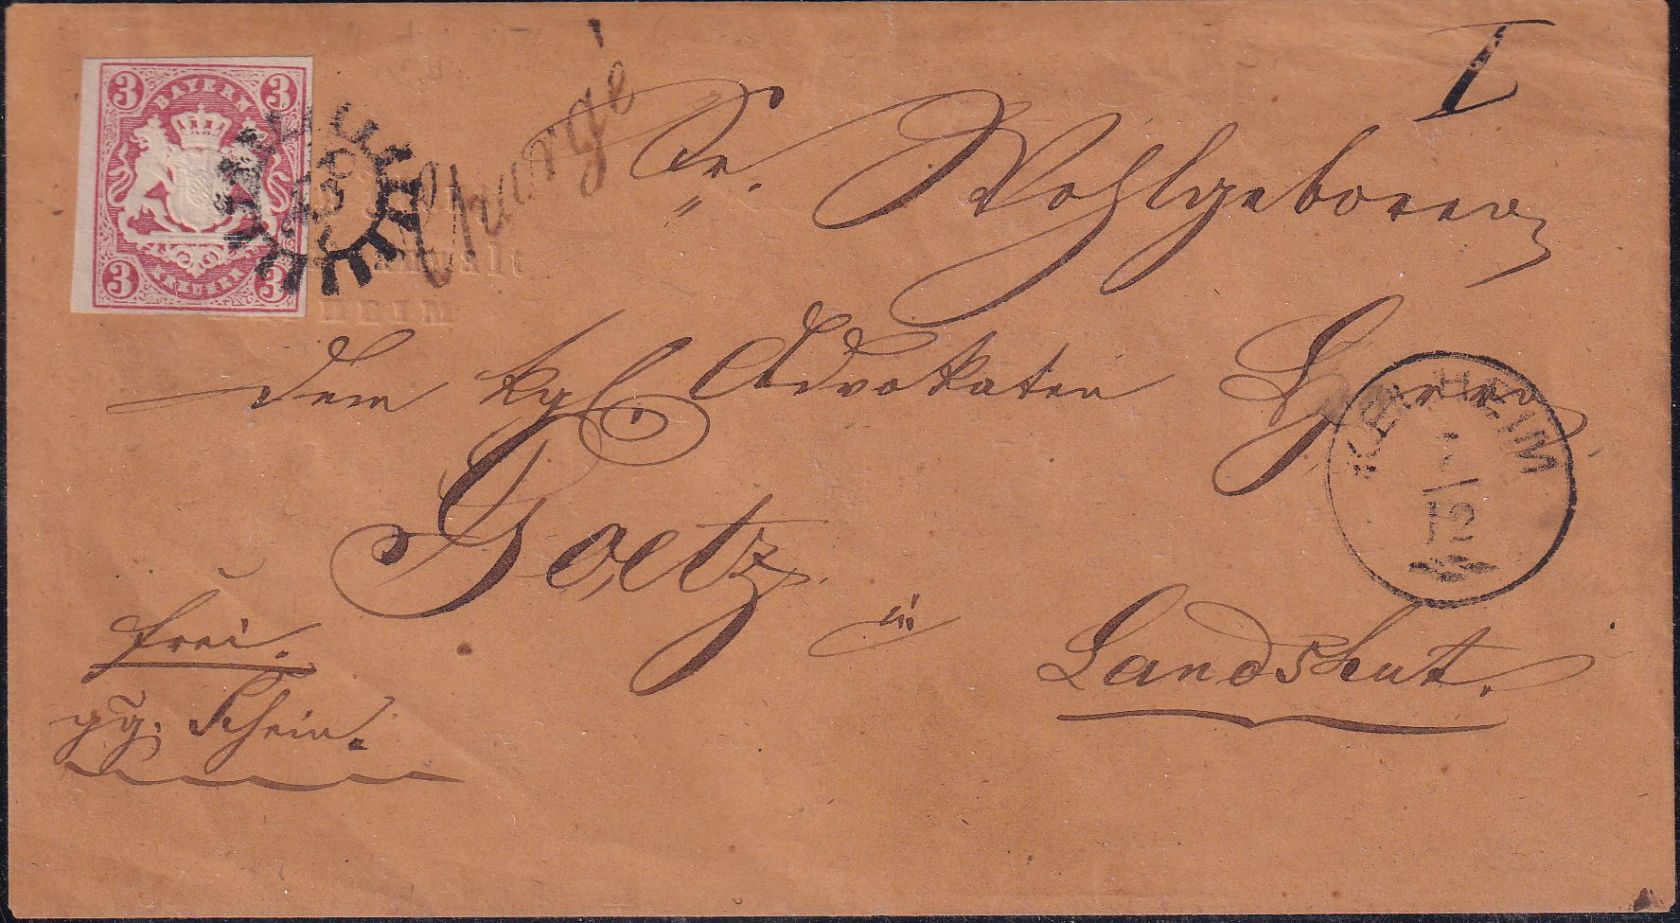 I
3 3
BAYERN
KREUZER
3 3
Chargé
Sr. Wohlgeboren
anwalt
HEIM
dem kgl. Advokaten Herrn
HEIM
7
/
12
Goetz
in
Landshut.
frei.
gg. Schein.